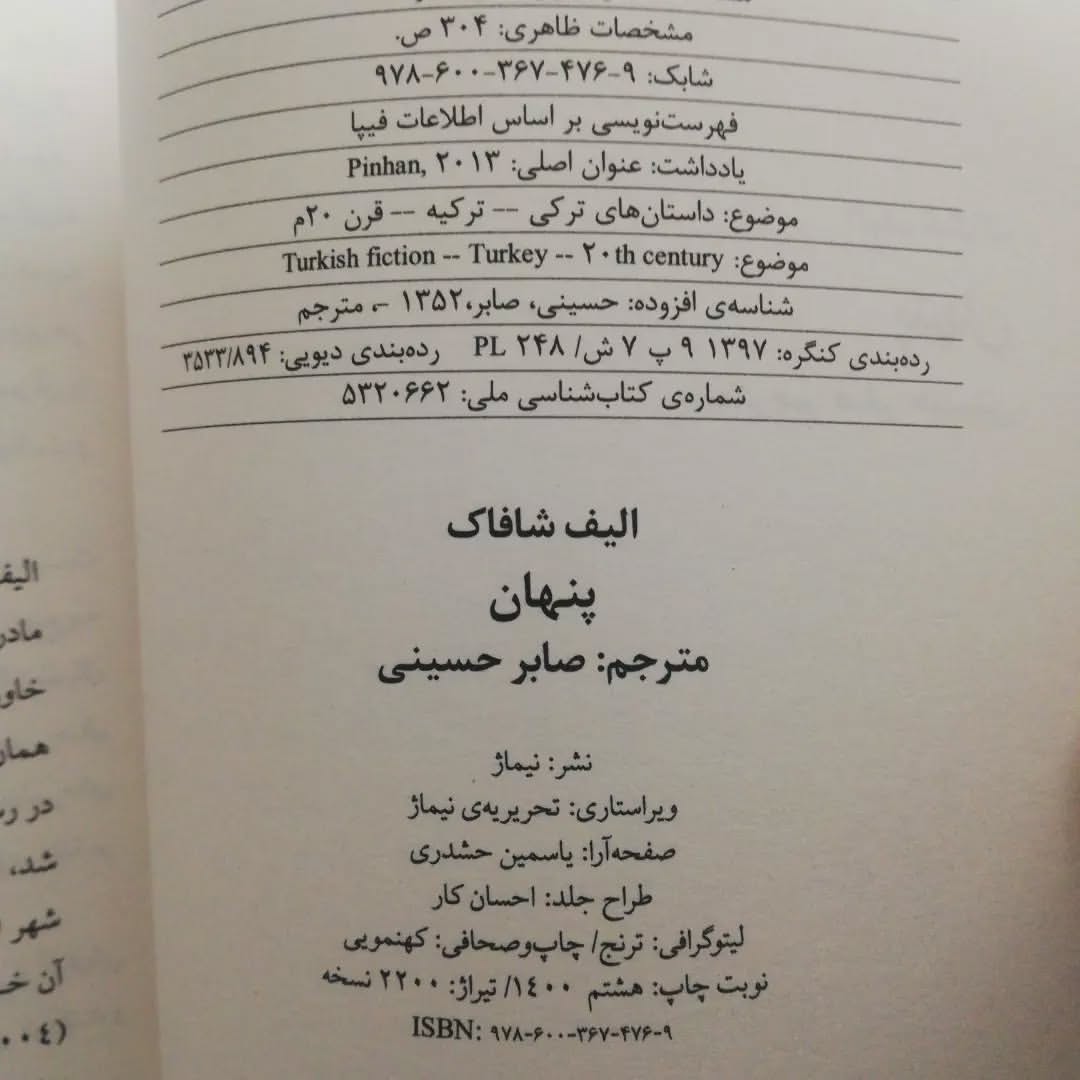 مشخصات ظاهری: ۳۰۴ ص.
شابک: ۹-۴۷۶-۳۶۷-۶۰۰-۹۷۸
فهرست‌نویسی بر اساس اطلاعات فیپا
یادداشت: عنوان اصلی: Pinhan, ۲۰۱۳
موضوع: داستان‌های ترکی -- ترکیه -- قرن ۲۰م
موضوع: Turkish fiction -- Turkey -- ۲۰th century
شناسه‌ی افزوده: حسینی، صابر،۱۳۵۲ -، مترجم
رده‌بندی کنگره: ۱۳۹۷ ۹ پ ۷ ش/ ۲۴۸ PL رده‌بندی دیویی: ۳۵۳۳/۸۹۴
شماره‌ی کتاب‌شناسی ملی: ۵۳۲۰۶۶۲
الیف شافاک
پنهان
مترجم: صابر حسینی
نشر: نیماژ
ویراستاری: تحریریه‌ی نیماژ
صفحه‌آرا: یاسمین حشدری
طراح جلد: احسان کار
لیتوگرافی: ترنج/ چاپ‌وصحافی: کهنمویی
نوبت چاپ: هشتم ۱۴۰۰/ تیراژ: ۲۲۰۰ نسخه
ISBN: ۹۷۸-۶۰۰-۳۶۷-۴۷۶-۹
مادر
همان
در
شد،
شهر
آن